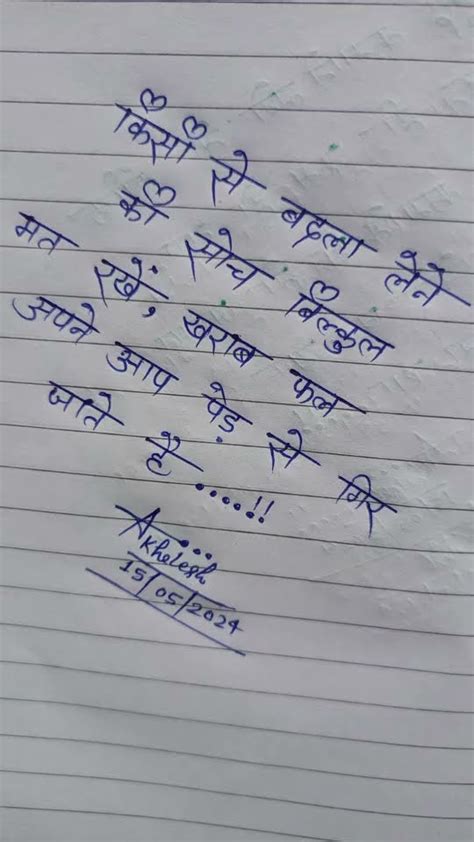 किसी से बदला लेने
की सोच बिल्कुल
मत रखें, खराब फल
अपने आप पेड़ से गिर
जाते है.....!!
A...
Khelesh
15/05/2024